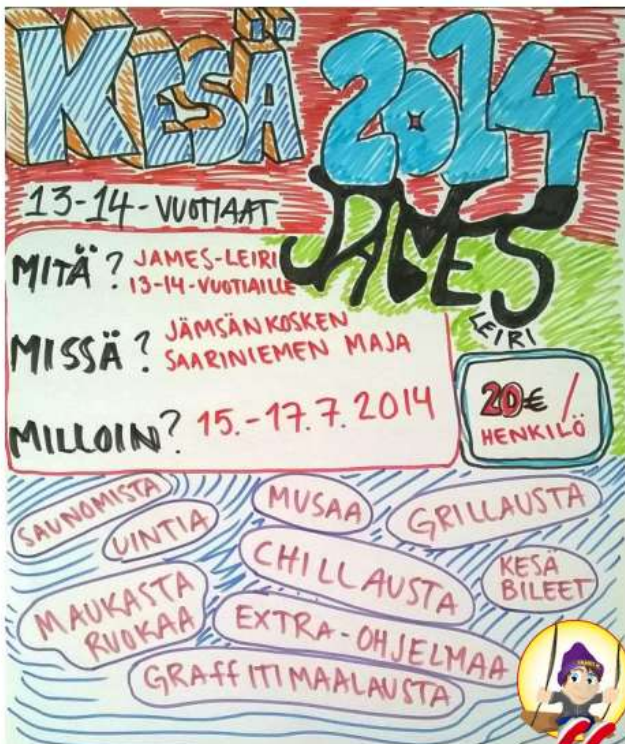 KESÄ 2014
13-14-VUOTIAAT
JAMES
LEIRI
MITÄ? JAMES-LEIRI
13-14-VUOTIAILLE
MISSÄ? JÄMSÄNKOSKEN
SAARINIEMEN MAJA
MILLOIN? 15.-17.7.2014
20€/
HENKILÖ
SAUNOMISTA
UINTIA
MUSAA
GRILLAUSTA
CHILLAUSTA
KESÄ
BILEET
MAUKASTA
RUOKAA
EXTRA-OHJELMAA
GRAFFITIMAALAUSTA